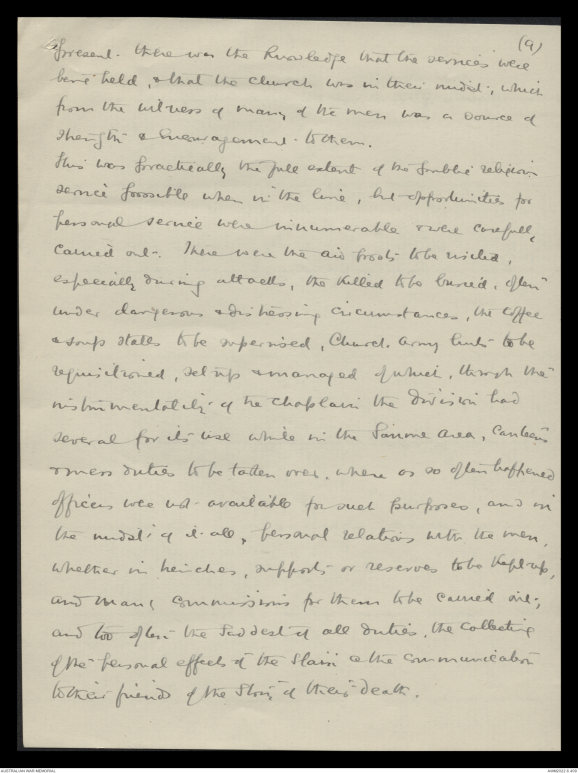 (9)
present. there was the knowledge that the services were
being held, & that the church was in their midst, which
from the witness of many of the men was a source of
strength & encouragement to them.
This was practically the full extent of the public religious
service possible when in the line, but opportunities for
personal service were innumerable & were carefully
carried out. There were the aid posts to be visited,
especially during attacks, the killed to be buried, often
under dangerous & distressing circumstances, the coffee
& soup stalls to be supervised, Church Army huts to be
requisitioned, set up & managed of which, through the
instrumentality of the chaplain the division had
several for its use while in the Somme area, Canteens
& mess duties to be taken over, where as so often happened
officers were not available for such purposes, and in
the midst of it all, personal relations with the men,
whether in trenches, supports or reserves to be kept up,
and many commissions for them to be carried out,
and too often the saddest of all duties, the collecting
of the personal effects of the slain & the communication
to their friends of the story of their death.
AUSTRALIAN WAR MEMORIAL